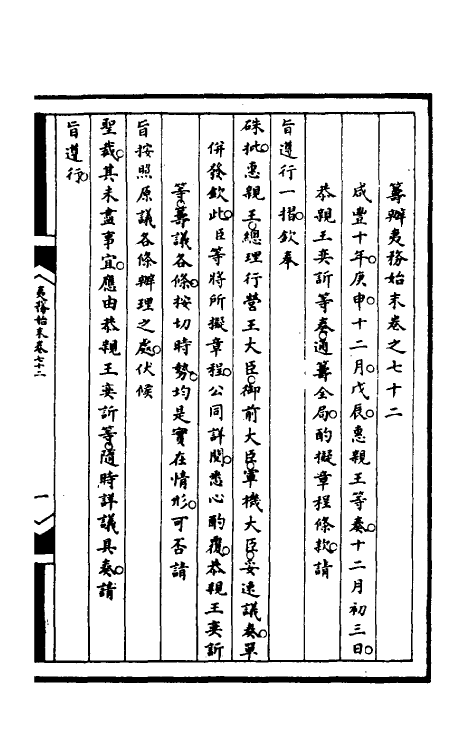 籌辦夷務始末卷之七十二
咸豐十年。庚申。十二月。戊辰。惠親王等奏。十二月初三日。
恭親王奕訢等奏。通籌全局。酌擬章程條款。請
旨遵行一摺。欽奉
硃批。惠親王。總理行營王大臣。御前大臣。軍機大臣。妥速議奏。單
併發。欽此。臣等將所擬章程。公同詳閱。悉心酌覆。恭親王奕訢
等。籌議各條。按切時勢。均是實在情形。可否請
旨按照原議各條辦理之處。伏候
聖裁。其未盡事宜。應由恭親王奕訢等。隨時詳議具奏。請
旨遵行。
夷務始末卷七十二
一